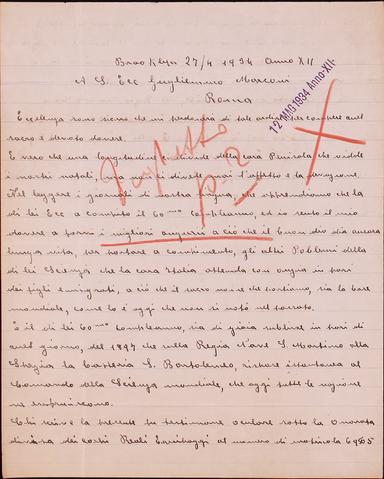 Brooklyn 27/4 1934 Anno XII
A S. Ecc Guglielmo Marconi
Roma
12 MAG 1934 Anno XII
Eccellenza sono sicuro che mi perdonerà di tale ardire per compiere un
sacro e devoto dovere.
E vero che una longitudine ci divide della cara Penisola che vidde
i nostri natali, ma non ci divide mai l'affetto e la devozione.
Nel leggere i giornali di nostra lingua, che apprendiamo che la
di lei Ecc a compito il 60mo Compleanno, ed io sento il mio
dovere a porvi i migliori auguri a ciò che il buon dio dia ancora
lunga vita, per portare a compimento, gli altri Poblemi della
di lei Scienza che la cara Italia attende con ansia in pari
dei figli emigrati, a ciò che il sacro nome che portiamo, sia la base
mondiale, come lo è oggi che non si nota nel passato.
E il di lei 60mo Compleanno, sia di gioia sublime in pari di
quel giorno, del 1897 che sulla Regia Nave S. Martino alla
Spezia la Batteria S. Bartolomeo, rispose istantanea al
Comando della Scienza mondiale, che oggi tutte le nazione
ne
Chi scrive la presente fu testimone oculare sotto la Onorata
divisa dei corpi Reali Equipaggi al numero di matricola 6965